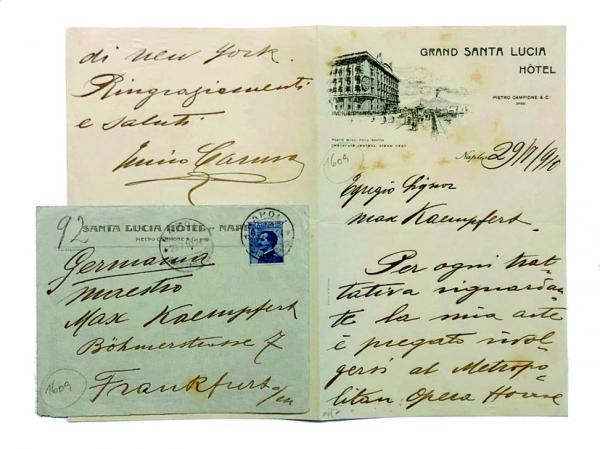 GRAND SANTA LUCIA
HÔTEL
PIETRO CAMPIONE & C.
1609
Naples 29/
Egregio Signor
Max Kaempfert.
Per ogni trat-
tativa riguardan-
te la mia arte
è pregato rivol-
gersi al Metropo-
litan Opera House
di New York.
Ringraziamenti
e saluti
Enrico Caruso
92
SANTA LUCIA HÔTEL - NAP
PIETRO CAMPIONE &
NAPOLI
Germania
Maestro
Max Kaempfert
Böhmerstrasse 7
Frankfurt a/m
1609